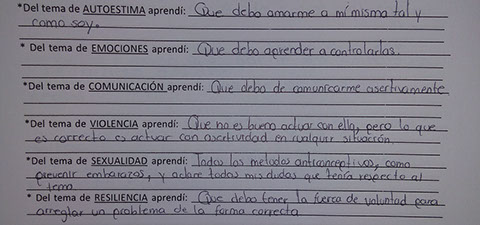 *Del tema de AUTOESTIMA aprendí: Que debo amarme a mí misma tal y
como soy.
* Del tema de EMOCIONES aprendí: Que debo aprender a controlarlas.
*Del tema de COMUNICACIÓN aprendí: Que debo de comunicarme asertivamente
*Del tema de VIOLENCIA aprendí: Que no es bueno actuar con ella, pero lo que
es correcto es actuar con asertividad en cualquir situación.
*Del tema de SEXUALIDAD aprendí: Todos los metodos anticonceptivos, como
prevenir embarazos, y aclare todas mis dudas que tenía respecto al
tema
* Del tema de RESILIENCIA aprendí: Que debo tener la fuerca de voluntad para
arreglar un problema de la forma correcta